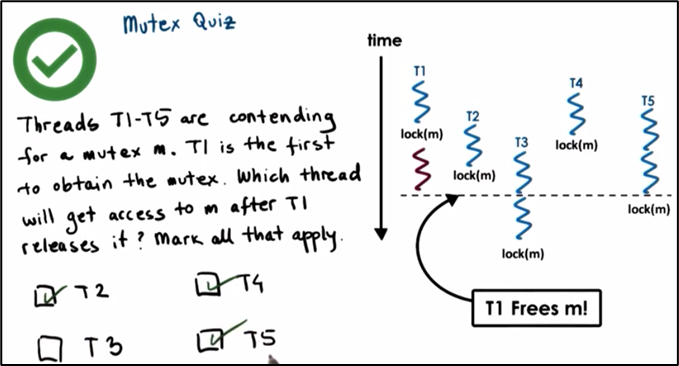 Mutex Quiz
Threads T1-T5 are contending
for a mutex m. T1 is the first
to obtain the mutex. Which thread
will get access to m after T1
releases it? Mark all that apply.
T2
T4
T3
T5
time
T1
lock(m)
T2
lock(m)
T3
lock(m)
T4
lock(m)
T5
lock(m)
T1 Frees m!